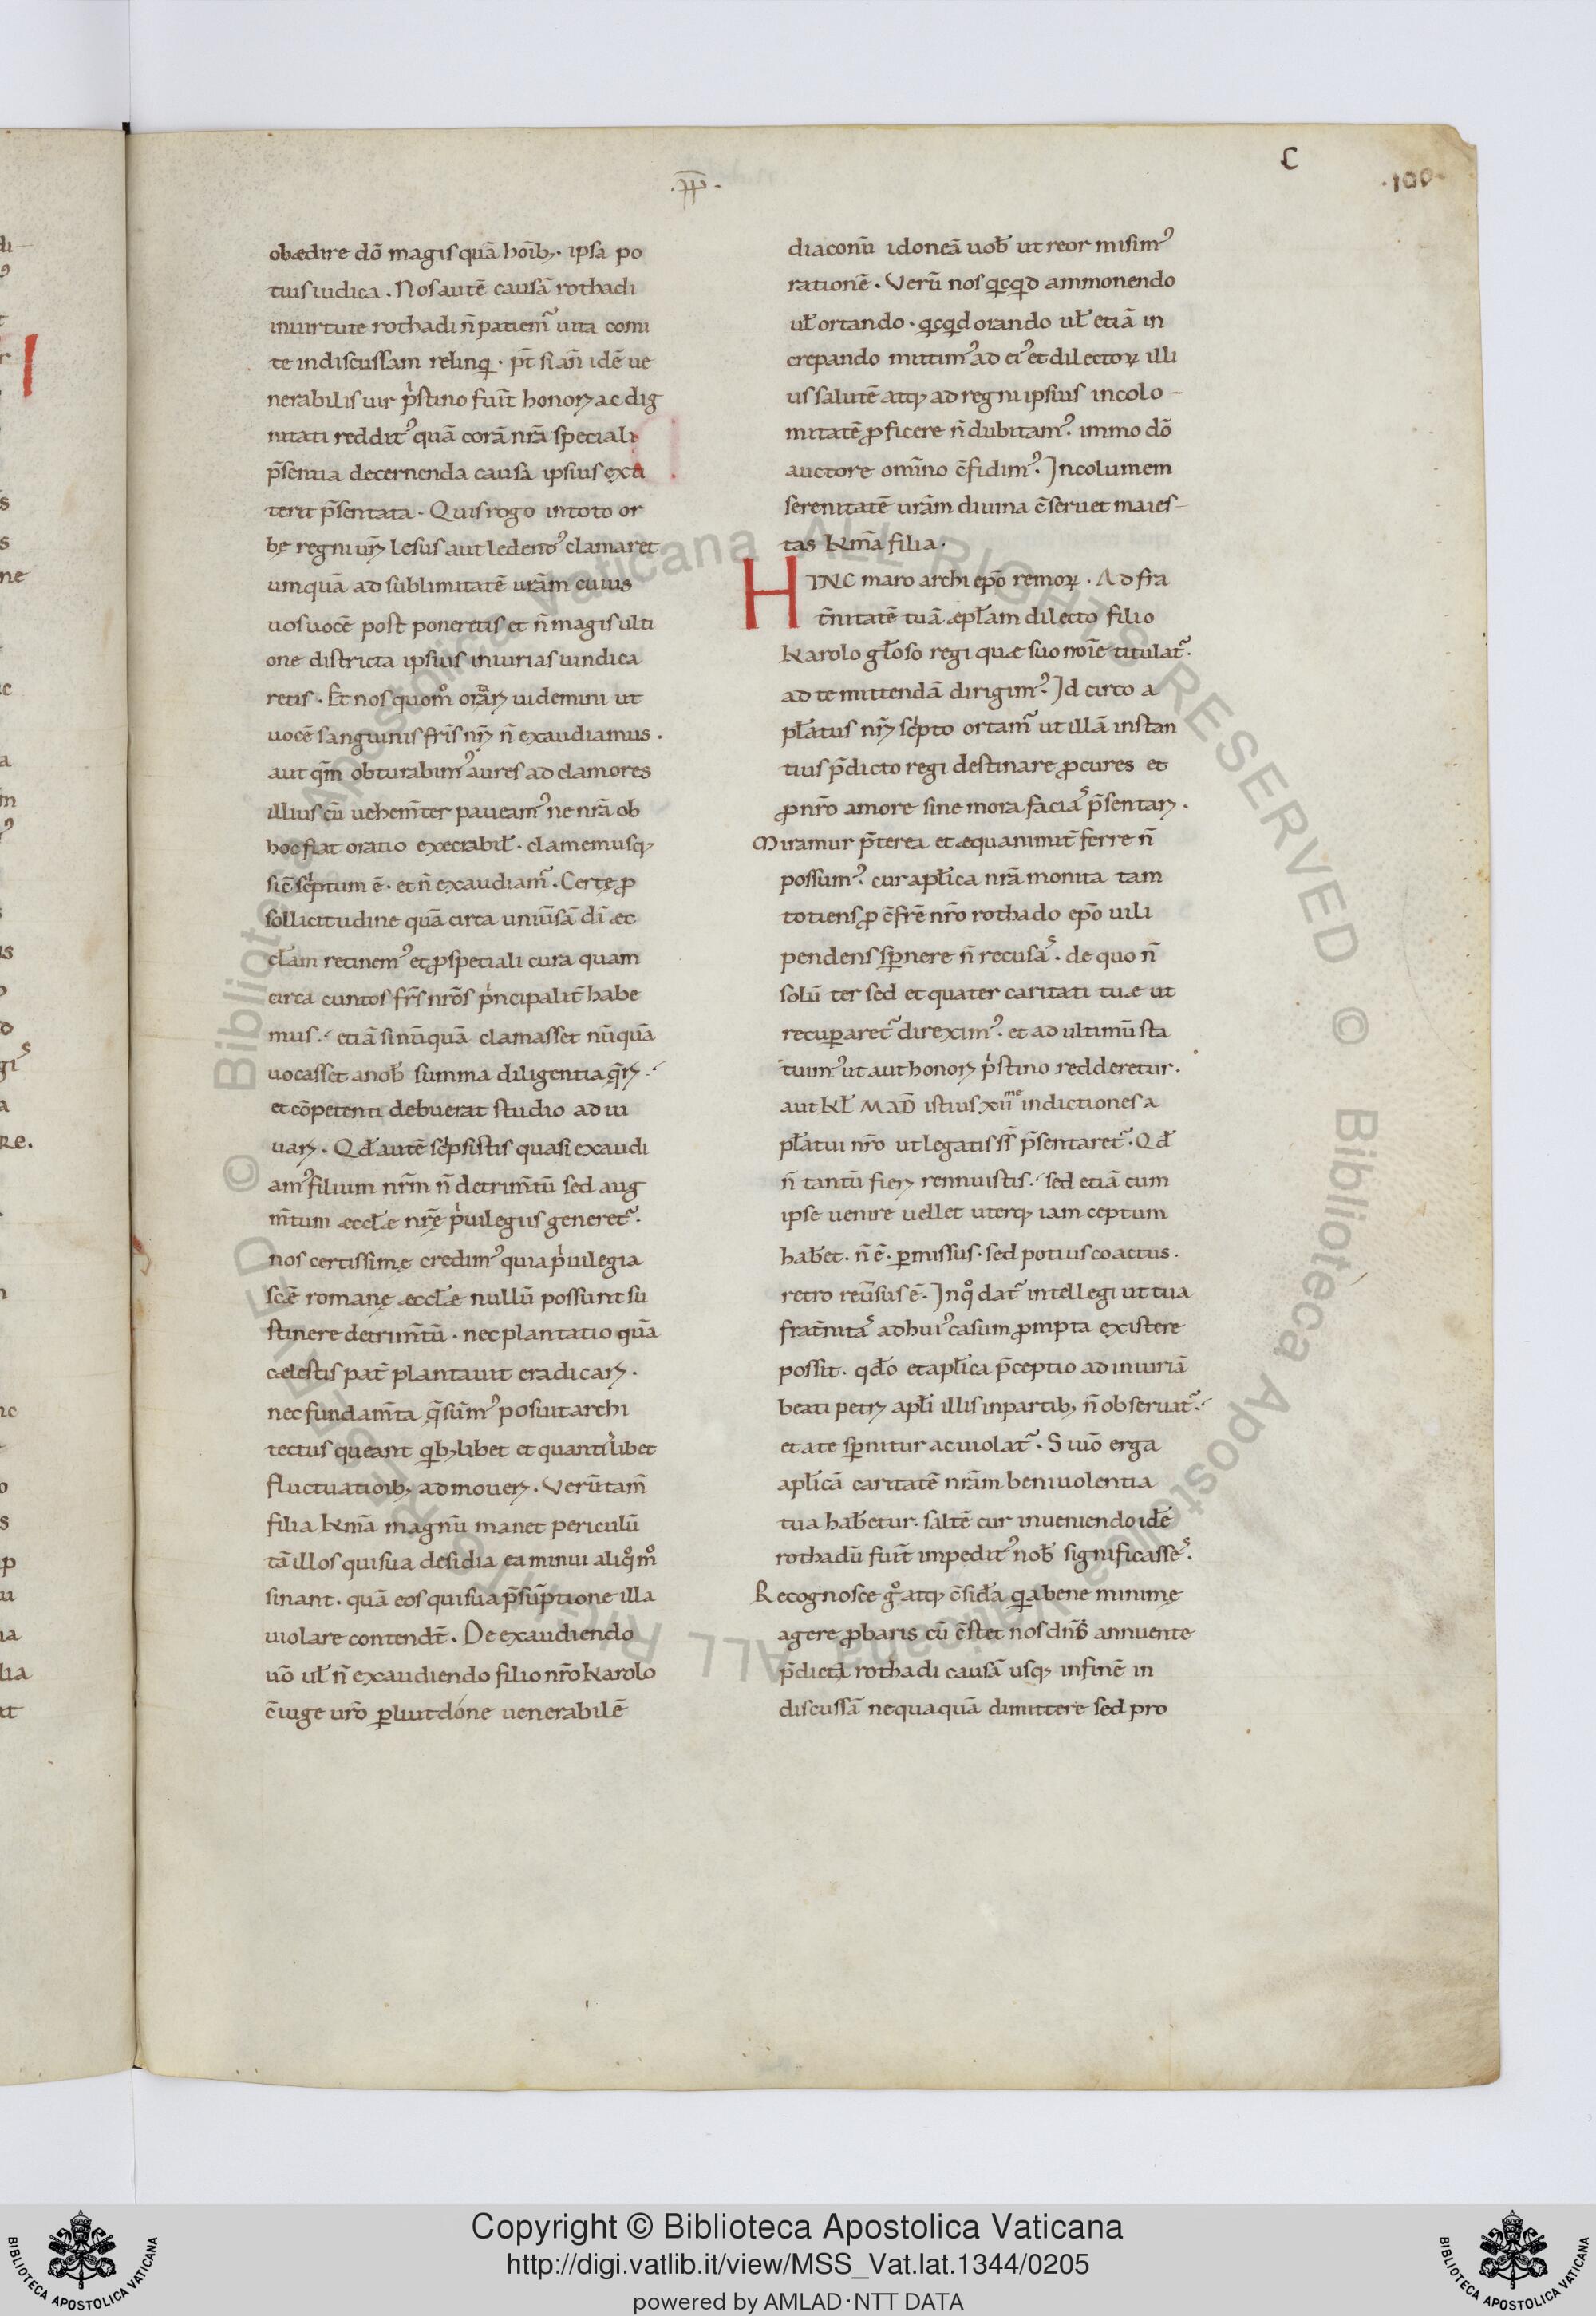 C
·100·
·p̄p̄·
obædire dō magis quā hoīb;. ipsa po
tius iudica. Nos autē causā rothadi
inuirtute rothadi n̄ patiem᷑ uita comi
te indiscussam relinq. p̄t si añ idē ue
nerabilis uir p̍stino fuit̄ honorꝫ ac dig
nitati reddit᾽ quā corā nrā speciali
p̄sentia decernenda causa ipsius exti
terit p̄sentata. Quis rogo intoto or
bę regni urꝫ lesus aut ledend᾽ clamaret
umquā ad sublimitatē urām cuius
uos uocē post poneretis et n̄ magis ulti
one districta ipsius iniurias uindica
retis. Et nos quom̊ orarꝫ uidemini ut
uocē sanguinis fr̄is nrꝫ n̄ exaudiamus.
aut qm̄ obturabim᾽ aures ad clamores
illius cū uehem̄ter paueam᾽ ne nrā ob
hoc fiat oratio execrabil̄. clamemusq;
sic̄ sc̍ptum ē. et n̄ exaudiam᷑. Certę ꝓ
sollicitudine quā circa uniūsā dī æc
cl̄am retinem᾽ et ꝓspeciali cura quam
circa cuntos fr̄s nrōs p̍ncipalit̄ habe
mus. etiā sinūquā clamasset nūquā
uocasset anob̄ summa diligentia q̄rꝫ.
et cōpetenti debuerat studio ad iu
uarꝫ. Qd̄ autē sc̍psistis quasi exaudi
am᾽ filium nrm̄ n̄ detrim̄tū sed aug
m̄tum æccl̄e nrę̄ p̍uilegiis generet᷑.
nos certissimę credim᾽ quia p̍uilegia
scē̄ romanę æccl̄æ nullū possunt su
stinere detrim̄tū. nec plantatio quā
cælestis pat̄ plantauit eradicarꝫ.
nec fundam̄ta q̄ sūm᾽ posuit archi
tectus queant qb;libet et quantilibet
fluctuatioīb; admouerꝫ. Verūtam̄
filia km̄a magnū manet periculū
tā illos quisua desidia ea minui aliq̊m̊
sinant. quā eos quisua p̄sūptione illa
uiolare contendt̄. De exaudiendo
uō ul̄ n̄ exaudiendo filio nrō karolo
c̄iuge urō ꝑliutdóne uenerabilē
diaconū idoneā uob̄ ut reor misim᾽
rationē. Verū nos qcqd ammonendo
ul̄ ortando. qcqd orando ul̄ etiā in
crepando mittim᾽ ad ei᾽ et dilectoꝝ illi
us salutē atq; ad regni ipsius incolo-
mitatē ꝓficere n̄ dubitam᾽. immo dō
auctore omīno c̄fidim᾽. Incolumem
serenitatē urām diuina c̄seruet maies-
tas km̄a filia.
HINC maro archi epō remoꝝ. Ad fra
t̄nitatē tuā æpl̄am dilecto filio
Karolo gl̄oso regi quæ suo noīe titulat᷑.
ad te mittendā dirigim᾽. Id circo a
pl̄atus nrꝫ sc̍pto ortam᷑ ut illā instan
tius p̄dicto regi destinare ꝓcures et
ꝓnrō amore sine mora facias p̄sentarꝫ.
Miramur p̄terea et æquanimit̄ ferre n̄
possum᾽. cur apl̄ica nrā monita tam
totiens ꝓ c̄frē nrō rothado epō uili
pendens sꝑnere n̄ recusas. de quo n̄
solū ter sed et quater caritati tuæ ut
recuꝑaret᷑ direxim᾽. et ad ultimū sta
tuim᾽ ut aut honorꝫ p̍stino redderetur.
aut kl̄ MAD̄ istius xii̅ me indictiones a
pl̄atui nrō ut legatis ss̄ p̄sentaret᷑. Qd̄
n̄ tantū fierꝫ rennuistis. sed etiā cum
ipse uenire uellet uterq; iam ceptum
hab̄et. n̄ ē. ꝑmissus. sed potius coactus.
retro reūsus ē. Inq̊ dat᷑ intellegi ut tua
frat̄nitas adhui᾽ casum ꝓmpta existere
possit. qd̄o et apl̄ica p̄ceptio ad iniuriā
beati petrꝫ apl̄i illis inpartib; n̄ obseruat᷑.
et ate sꝑnitur ac uiolat᷑. S uiō erga
apl̄icā caritatē nrām beniuolentia
tua hab̄etur. saltē cur inueniendo idē
rothadū fuit̄ impedit᾽ nob̄ significasses.
Recognosce g̊ atq; c̄sid̄a qa bene minimę
agere ꝓbaris cū c̄stet nos dn̄o annuente
p̄dictā rothadi causā usq; infinē in
discussā nequaquā dimittere sed pro
Copyright © Biblioteca Apostolica Vaticana
http://digi.vatlib.it/view/MSS_Vat.lat.1344/0205
powered by AMLAD·NTT DATA
BIBLIOTECA APOSTOLICA VATICANA
BIBLIOTECA APOSTOLICA VATICANA